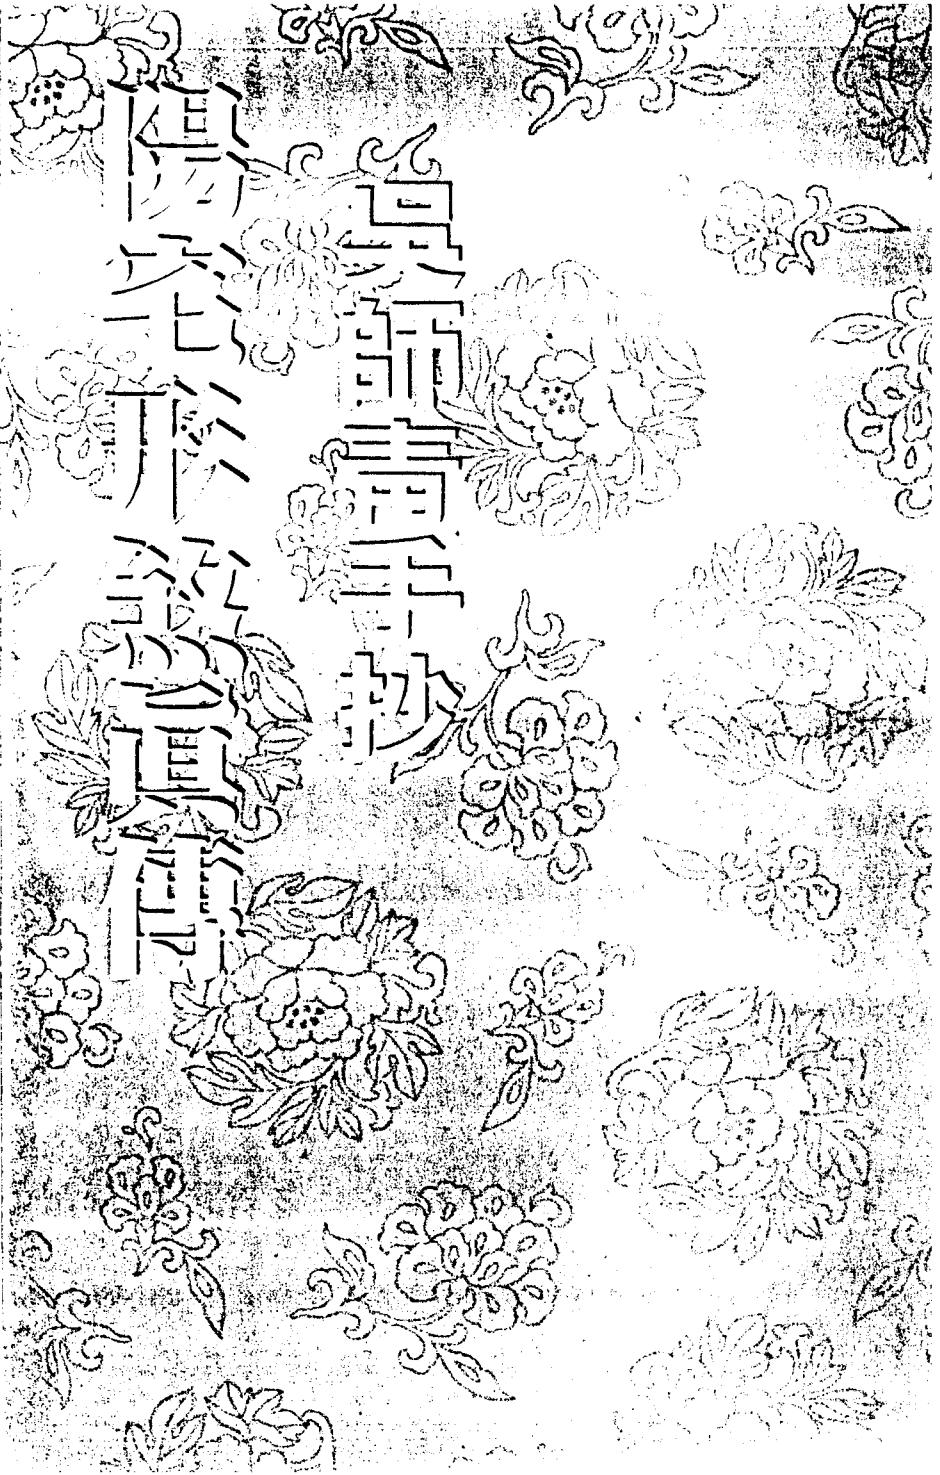 吳師青手抄
陽宅形煞真